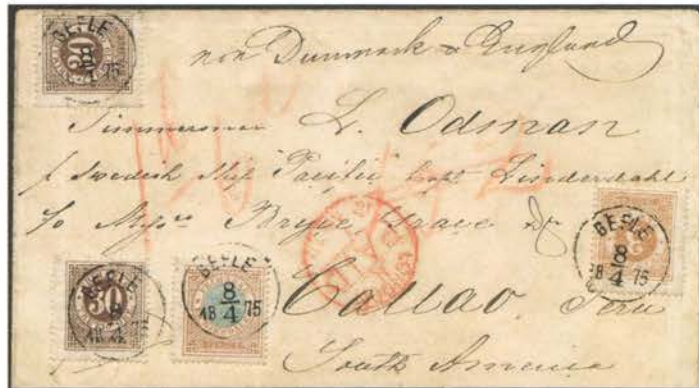 GEFLE
8
4
18 75
30
Danmark & England
Timmerman L. Odman
Swedish Ship "Pacific" Capt Linderdahl
c/o Mess.rs Bryce Grace & Co
GEFLE
8
4
18 75
GEFLE
8
4
18 75
30
GEFLE
8
4
18 75
Callao. Peru
South America